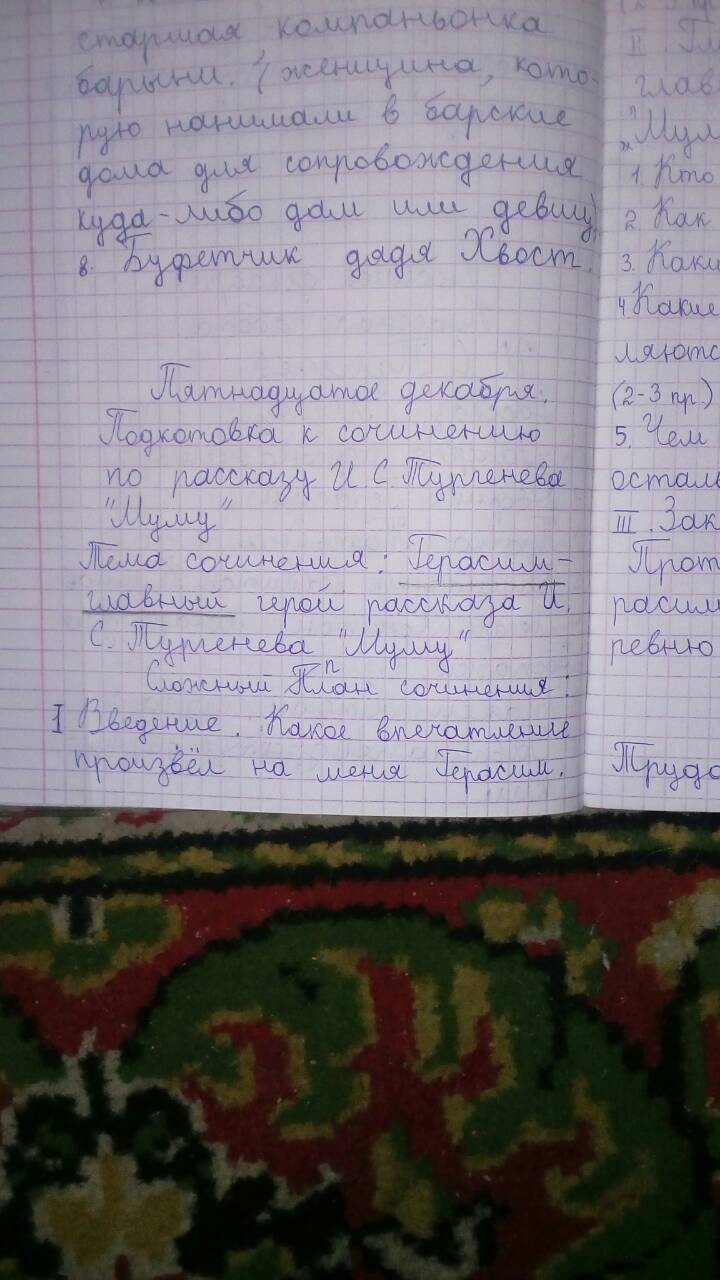 старшая компаньонка
барыни. (женщина, кото-
рую нанимали в барские
дома для сопровождения
куда-либо дам или девиц)
8. Буфетчик дядя Хвост.
Пятнадцатое декабря.
Подкотовка к сочинению
по рассказу И. С. Тургенева
"Муму"
Тема сочинения: Герасим-
главный герой рассказа И.
С. Тургенева "Муму"
Сложный План сочинения:
I Введение. Какое впечатление
произвёл на меня Герасим.
II Гл
глав
"Мум
1. Кто
2. Как
3. Каки
4 Какие
ляютс
(2-3 пр.)
5. Чем
осталь
III. Зак
Прот
расим
ревню
Трудо